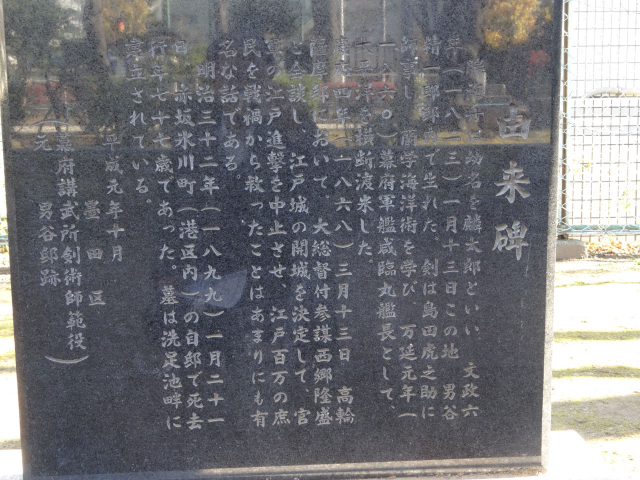 由来碑
勝海舟幼名を麟太郎といい、文政六
年(一八二三)一月十三日この地、男谷
精一郎邸内で生れた。剣は島田虎之助に
師事し、蘭学海洋術を学び、万延元年(一
八六〇)幕府軍艦咸臨丸艦長として、
太平洋を横断渡米した。
四年(一八六八)三月十三日、高輪
薩摩邸において、大総督付参謀西郷隆盛
と会談し、江戸城の開城を決定して、官
軍の江戸進撃を中止させ、江戸百万の庶
民を戦禍から救ったことはあまりにも有
名な話である。
明治三十二年(一八九九)一月二十一
日、赤坂氷川町(港区内)の自邸で死去
行年七十七歳であった。墓は洗足池畔に
立されている。
平成元年十月
墨田区
(幕府講武所剣術師範役)
元 男谷邸跡